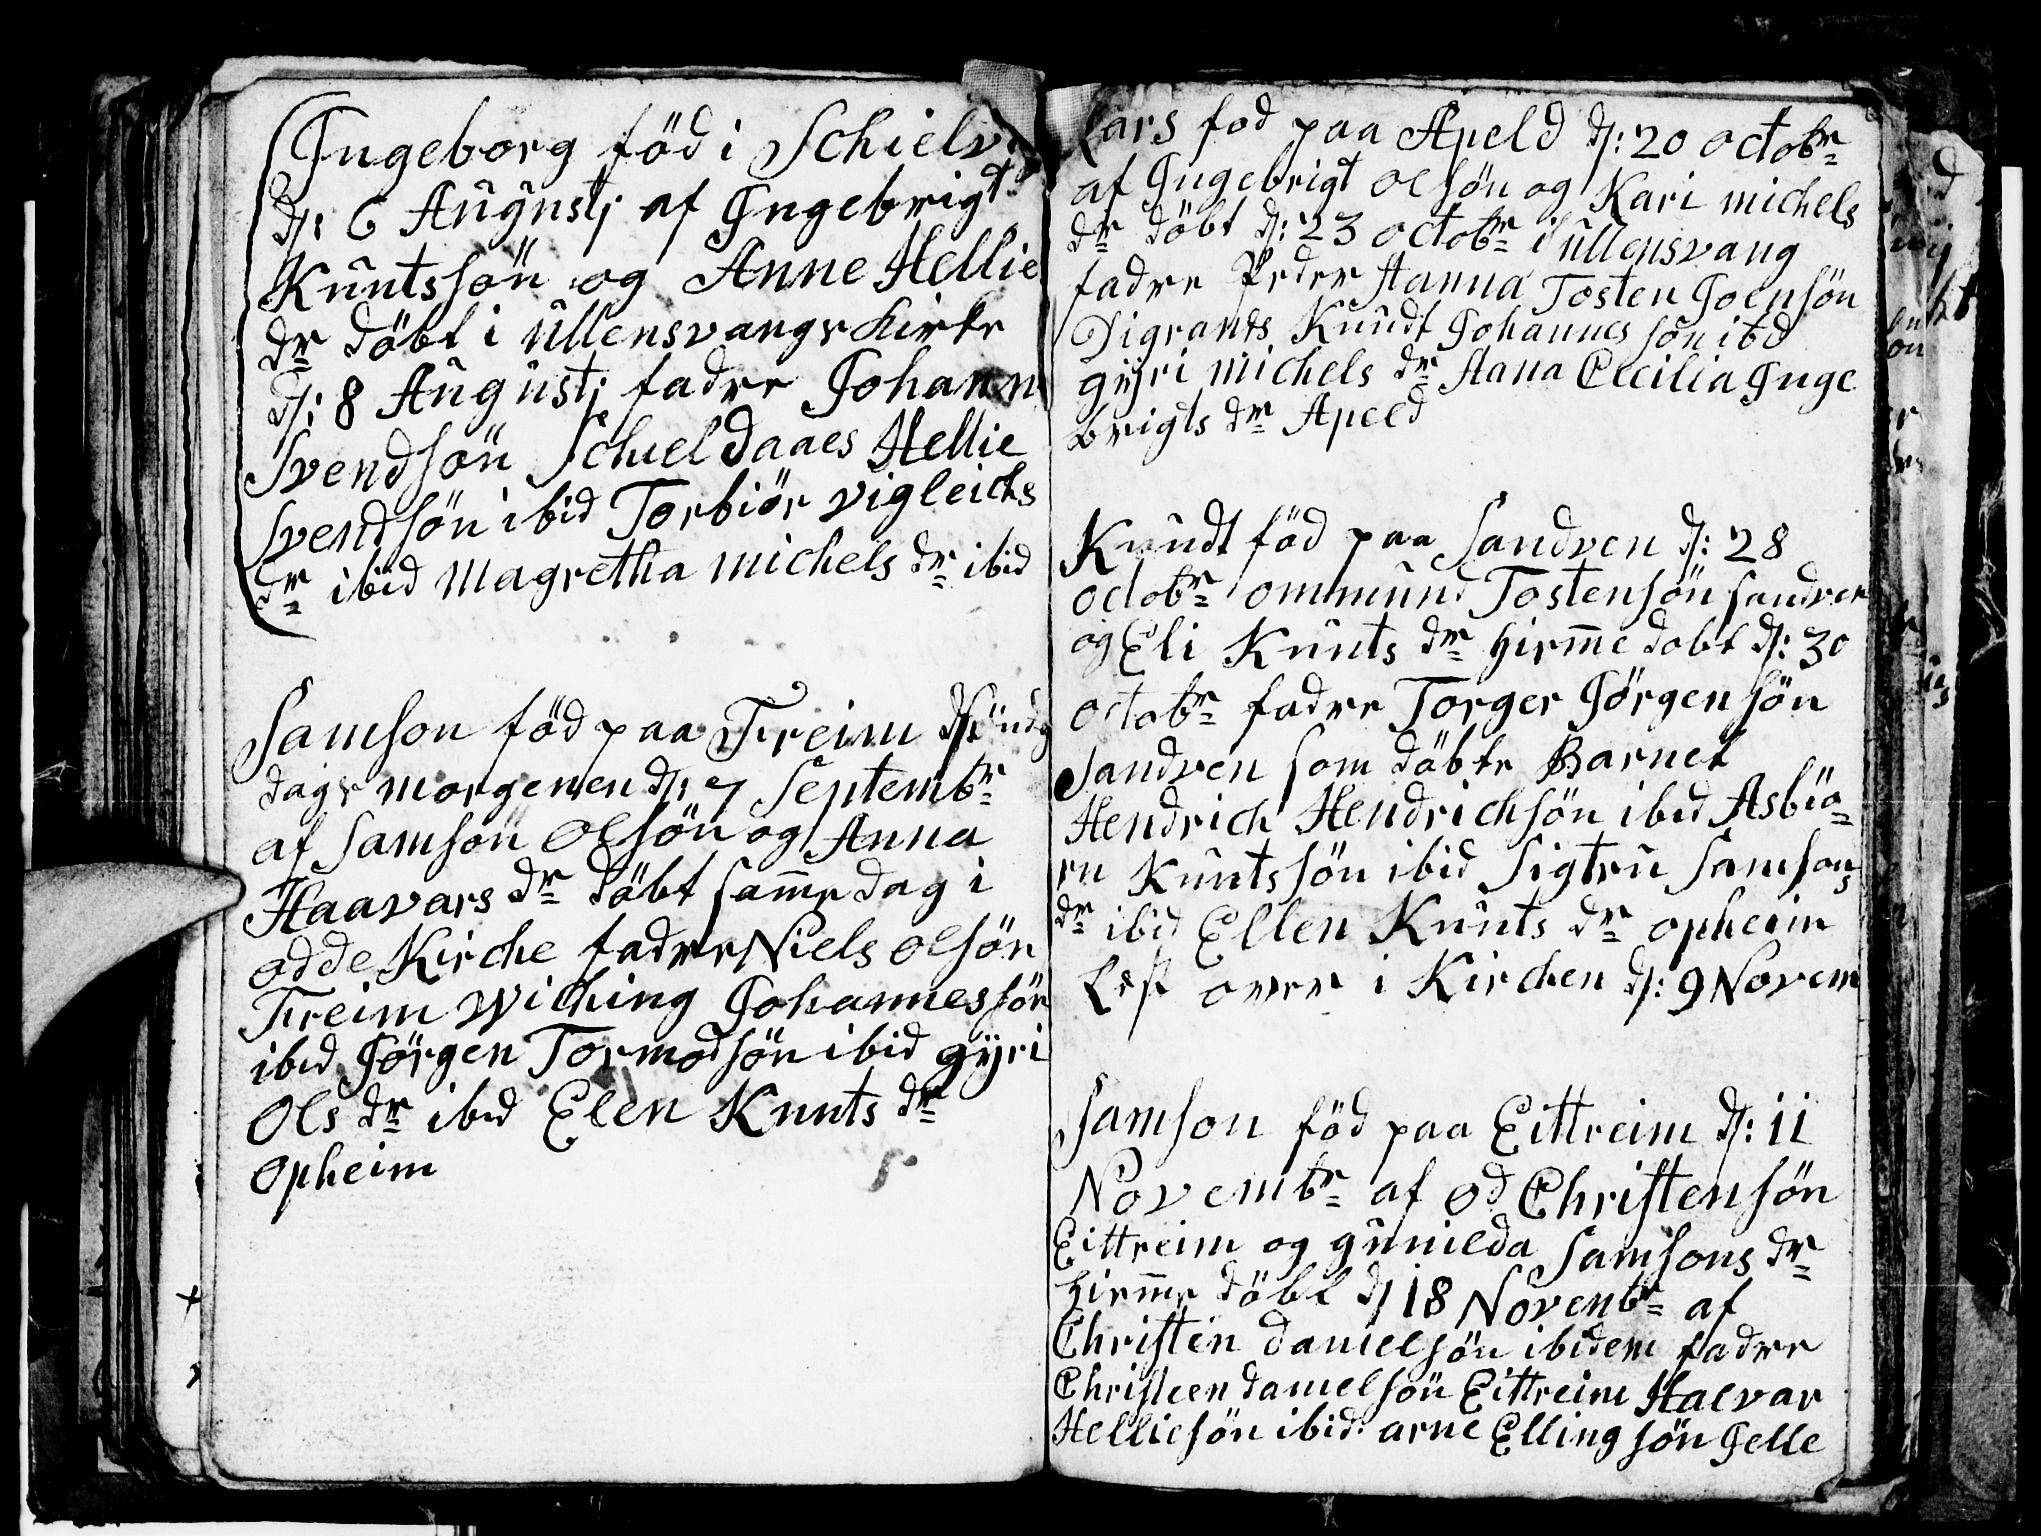 Ingeborg föd i Schielv
d: 6 Augustj af Ingebrigt
Kuntssön og Anne Hellie
dr döbt i Ullensvangs Kirke
d: 8 Augustj fadre Johann
Svendsön Schieldaaes Hellie
Svendsön ibid Torbiör Vigleichs
dr ibid Magretha Michels dr ibid
Samson föd paa Freim
dags morgenen d: 7 Septembr
af Samson Olsön og Anna
Haavars dr döbt samme dag i
odde Kirche fadre Niels Olsön
Freim Wiching Johannessön
ibid Jörgen Tormodsön ibid gÿri
Ols dr ibid Elen Knuts dr
Opheim
Lars fod paa Apeld d: 20 octobr
af Ingebrigt olsön og Kari michels
dr döbt d: 23 octobr i Ullensvang
fadre Peder Hanna Tosten Joensön
Digranes Knudt Johannes sön ibd
gÿri michels dr Hana Cecilia Inge
brigts dr Apeld
Knudt föd paa Sandven d: 28
octobr ommund Tostensön sandven
og Eli Knuts dr hirme dobt d: 30
octobr fadre Torger Jörgensön
Sandven som döbte Barnet
Hendrich Hendrichsön ibid Asbiö=
rn Kuntssön ibid Sigtru Samsons
dr ibid Ellen Knuts dr opheim
Lest over i Kirchen d: 9 Novem
Samson föd paa Eittreim d: 11
Novembr af od Christensön
Eittreim og gunilda Samsons dr
hirme döbt d 18 Novenbr af
Christen danielsön ibidem fadre
Christeen danielsön Eittreim Halvar
Helliesön ibid arne Elling sön Jelle